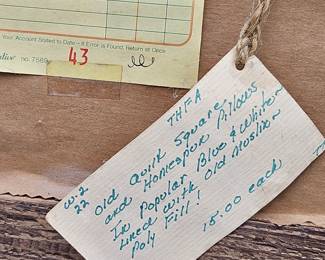 Your Account Stated to Date - If Error is Found, Return at Once
no. 7569
43
THFA
W-2
22 Old Quilt Square
and Homespun Pillows
In Popular Blue & White
Lined with Old Muslin
Poly Fill!
15.00 each